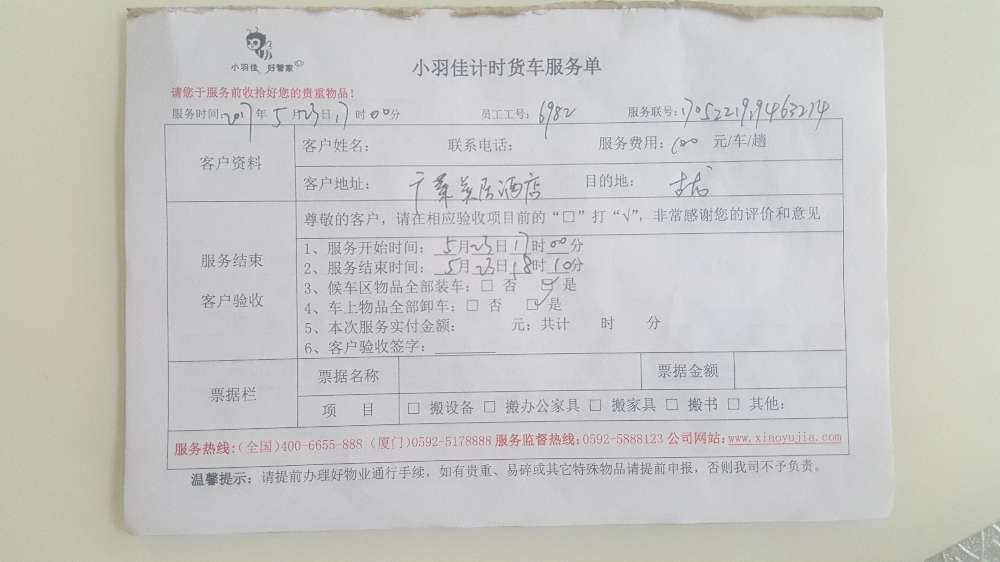 小羽佳 好管家
小羽佳计时货车服务单
请您于服务前收拾好您的贵重物品!
服务时间:2017年5月23日17时00分 员工工号:6982 服务联号:
客户资料
客户姓名: 联系电话: 服务费用:100 元/车/趟
客户地址: 美居酒店 目的地:
服务结束
客户验收
尊敬的客户,请在相应验收项目前的“□”打“√”,非常感谢您的评价和意见
1、服务开始时间:5月23日17时00分
2、服务结束时间:5月23日18时10分
3、候车区物品全部装车:□ 否 ☑ 是
4、车上物品全部卸车:□ 否 ☑ 是
5、本次服务实付金额: 元;共计 时 分
6、客户验收签字:
票据栏
票据名称 票据金额
项 目 □ 搬设备 □ 搬办公家具 □ 搬家具 □ 搬书 □ 其他:
服务热线:(全国)400-6655-888(厦门)0592-5178888 服务监督热线:0592-5888123 公司网站:www.xiaoyujia.com
温馨提示:请提前办理好物业通行手续,如有贵重、易碎或其它特殊物品请提前申报,否则我司不予负责。